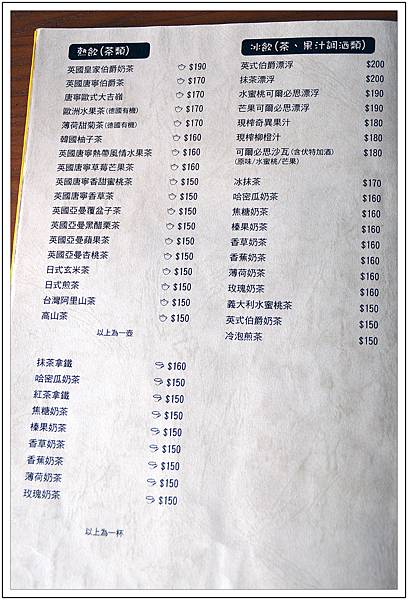 熱飲(茶類)
英國皇家伯爵奶茶 $190
英國唐寧伯爵茶 $170
唐寧歐式大吉嶺 $170
歐洲水果茶(德國有機) $170
薄荷甜菊茶(德國有機) $170
韓國柚子茶 $160
英國唐寧熱帶風情水果茶 $160
英國唐寧草莓芒果茶 $160
英國唐寧香甜蜜桃茶 $150
英國唐寧香草茶 $150
英國亞曼覆盆子茶 $150
英國亞曼黑醋栗茶 $150
英國亞曼蘋果茶 $150
英國亞曼杏桃茶 $150
日式玄米茶 $150
日式煎茶 $150
台灣阿里山茶 $150
高山茶 $150
以上為一壺
抹茶拿鐵 $160
哈密瓜奶茶 $150
紅茶拿鐵 $150
焦糖奶茶 $150
榛果奶茶 $150
香草奶茶 $150
香蕉奶茶 $150
薄荷奶茶 $150
玫瑰奶茶 $150
以上為一杯
冰飲(茶、果汁調酒類)
英式伯爵漂浮 $200
抹茶漂浮 $200
水蜜桃可爾必思漂浮 $180
芒果可爾必思漂浮 $180
現榨奇異果汁 $180
現榨柳橙汁 $180
可爾必思沙瓦(含伏特加酒) $180
(原味/水蜜桃/芒果)
冰抹茶 $170
哈密瓜奶茶 $160
焦糖奶茶 $160
榛果奶茶 $160
香草奶茶 $160
香蕉奶茶 $160
薄荷奶茶 $160
玫瑰奶茶 $160
義大利水蜜桃茶 $160
英式伯爵奶茶 $150
冷泡煎茶 $150